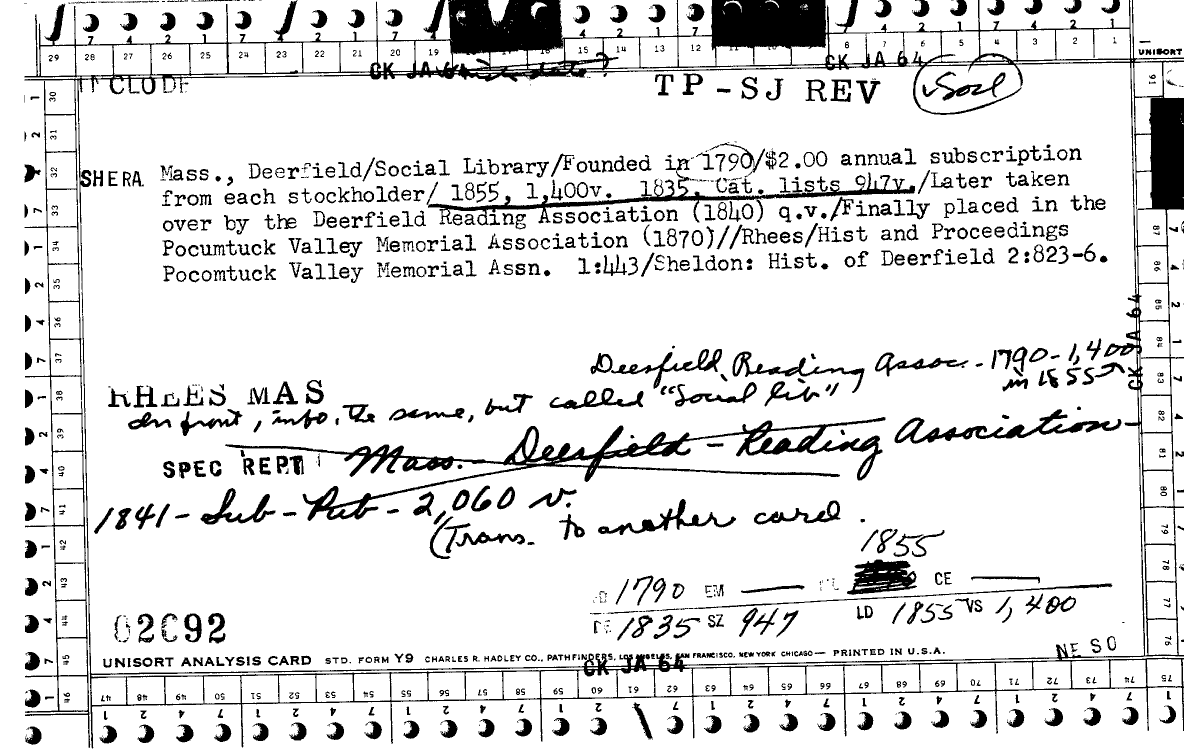 7 4 2 1 7 4 2 1 7 4 2 1 4 2 1 7 7 4 2 1
29 28 27 26 25 24 23 22 21 20 19 15 14 13 12 8 7 6 5 4 3 2 1 UNISORT
CK JA 64 date? CK JA 64
INCLUDE TP-SJ REV Socl
SHERA Mass., Deerfield/Social Library/Founded in 1790/$2.00 annual subscription
from each stockholder/ 1855, 1,400v. 1835, Cat. lists 947v./Later taken
over by the Deerfield Reading Association (1840) q.v./Finally placed in the
Pocumtuck Valley Memorial Association (1870)//Rhees/Hist and Proceedings
Pocomtuck Valley Memorial Assn. 1:443/Sheldon: Hist. of Deerfield 2:823-6.
Deerfield Reading Assoc. - 1790 - 1,400
in 1855
RHEES MAS
On front, info. the same, but called "Social lib"
SPEC REPT Mass. - Deerfield - Reading Association -
1841 - Sub - Pub - 2,060 v.
(Trans. to another card.
1855
1790 EM CE
DE 1835 SZ 947 LD 1855 VS 1,400
02C92
UNISORT ANALYSIS CARD STD. FORM Y9 CHARLES R. HADLEY CO., PATHFINDERS, LOS ANGELES, SAN FRANCISCO, NEW YORK CHICAGO — PRINTED IN U.S.A.
CK JA 64
NE SO
CK JA 64
30 31 32 33 34 35 36 37 38 39 40 41 42 43 44 45 46
91 87 86 85 84 83 82 81 80 79 78 77 76
47 48 49 50 51 52 53 54 55 56 57 58 59 60 61 62 63 64 65 66 67 68 69 70 71 72 73 74 75
1 2 4 7 1 2 4 7 1 2 4 7 1 2 7 1 2 4 7 1 2 4 7 1 2 4 7 1